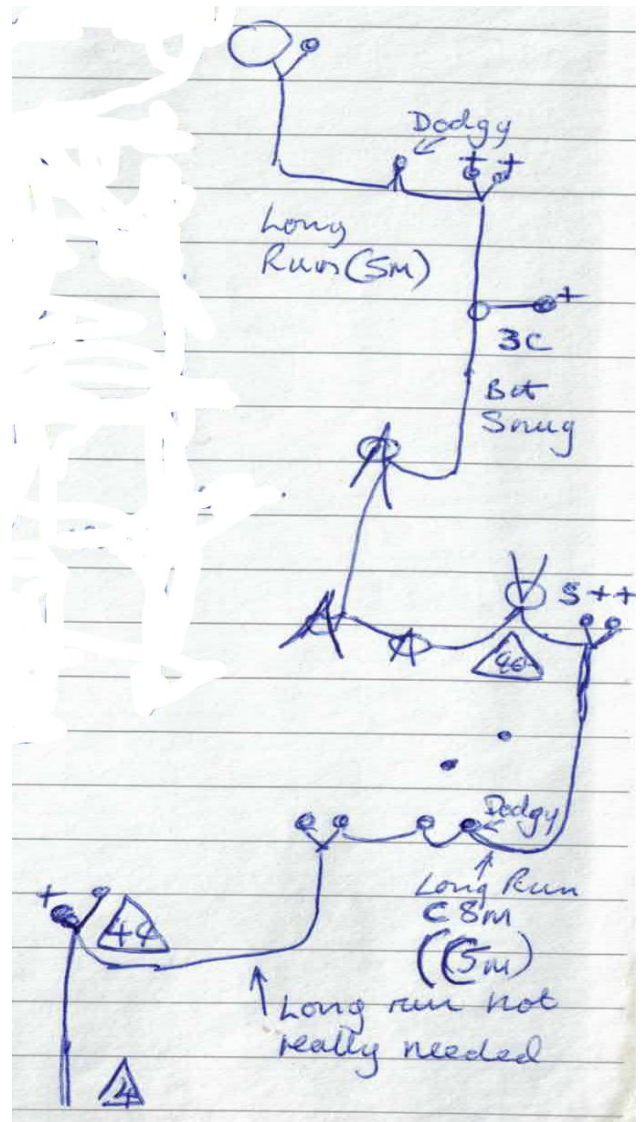 Dodgy
+ +
Long
Run (5m)
+
3C
Bit
Snug
S ++
Dodgy
Long Run
C 8m
(5m)
+
Long run not
really needed
4